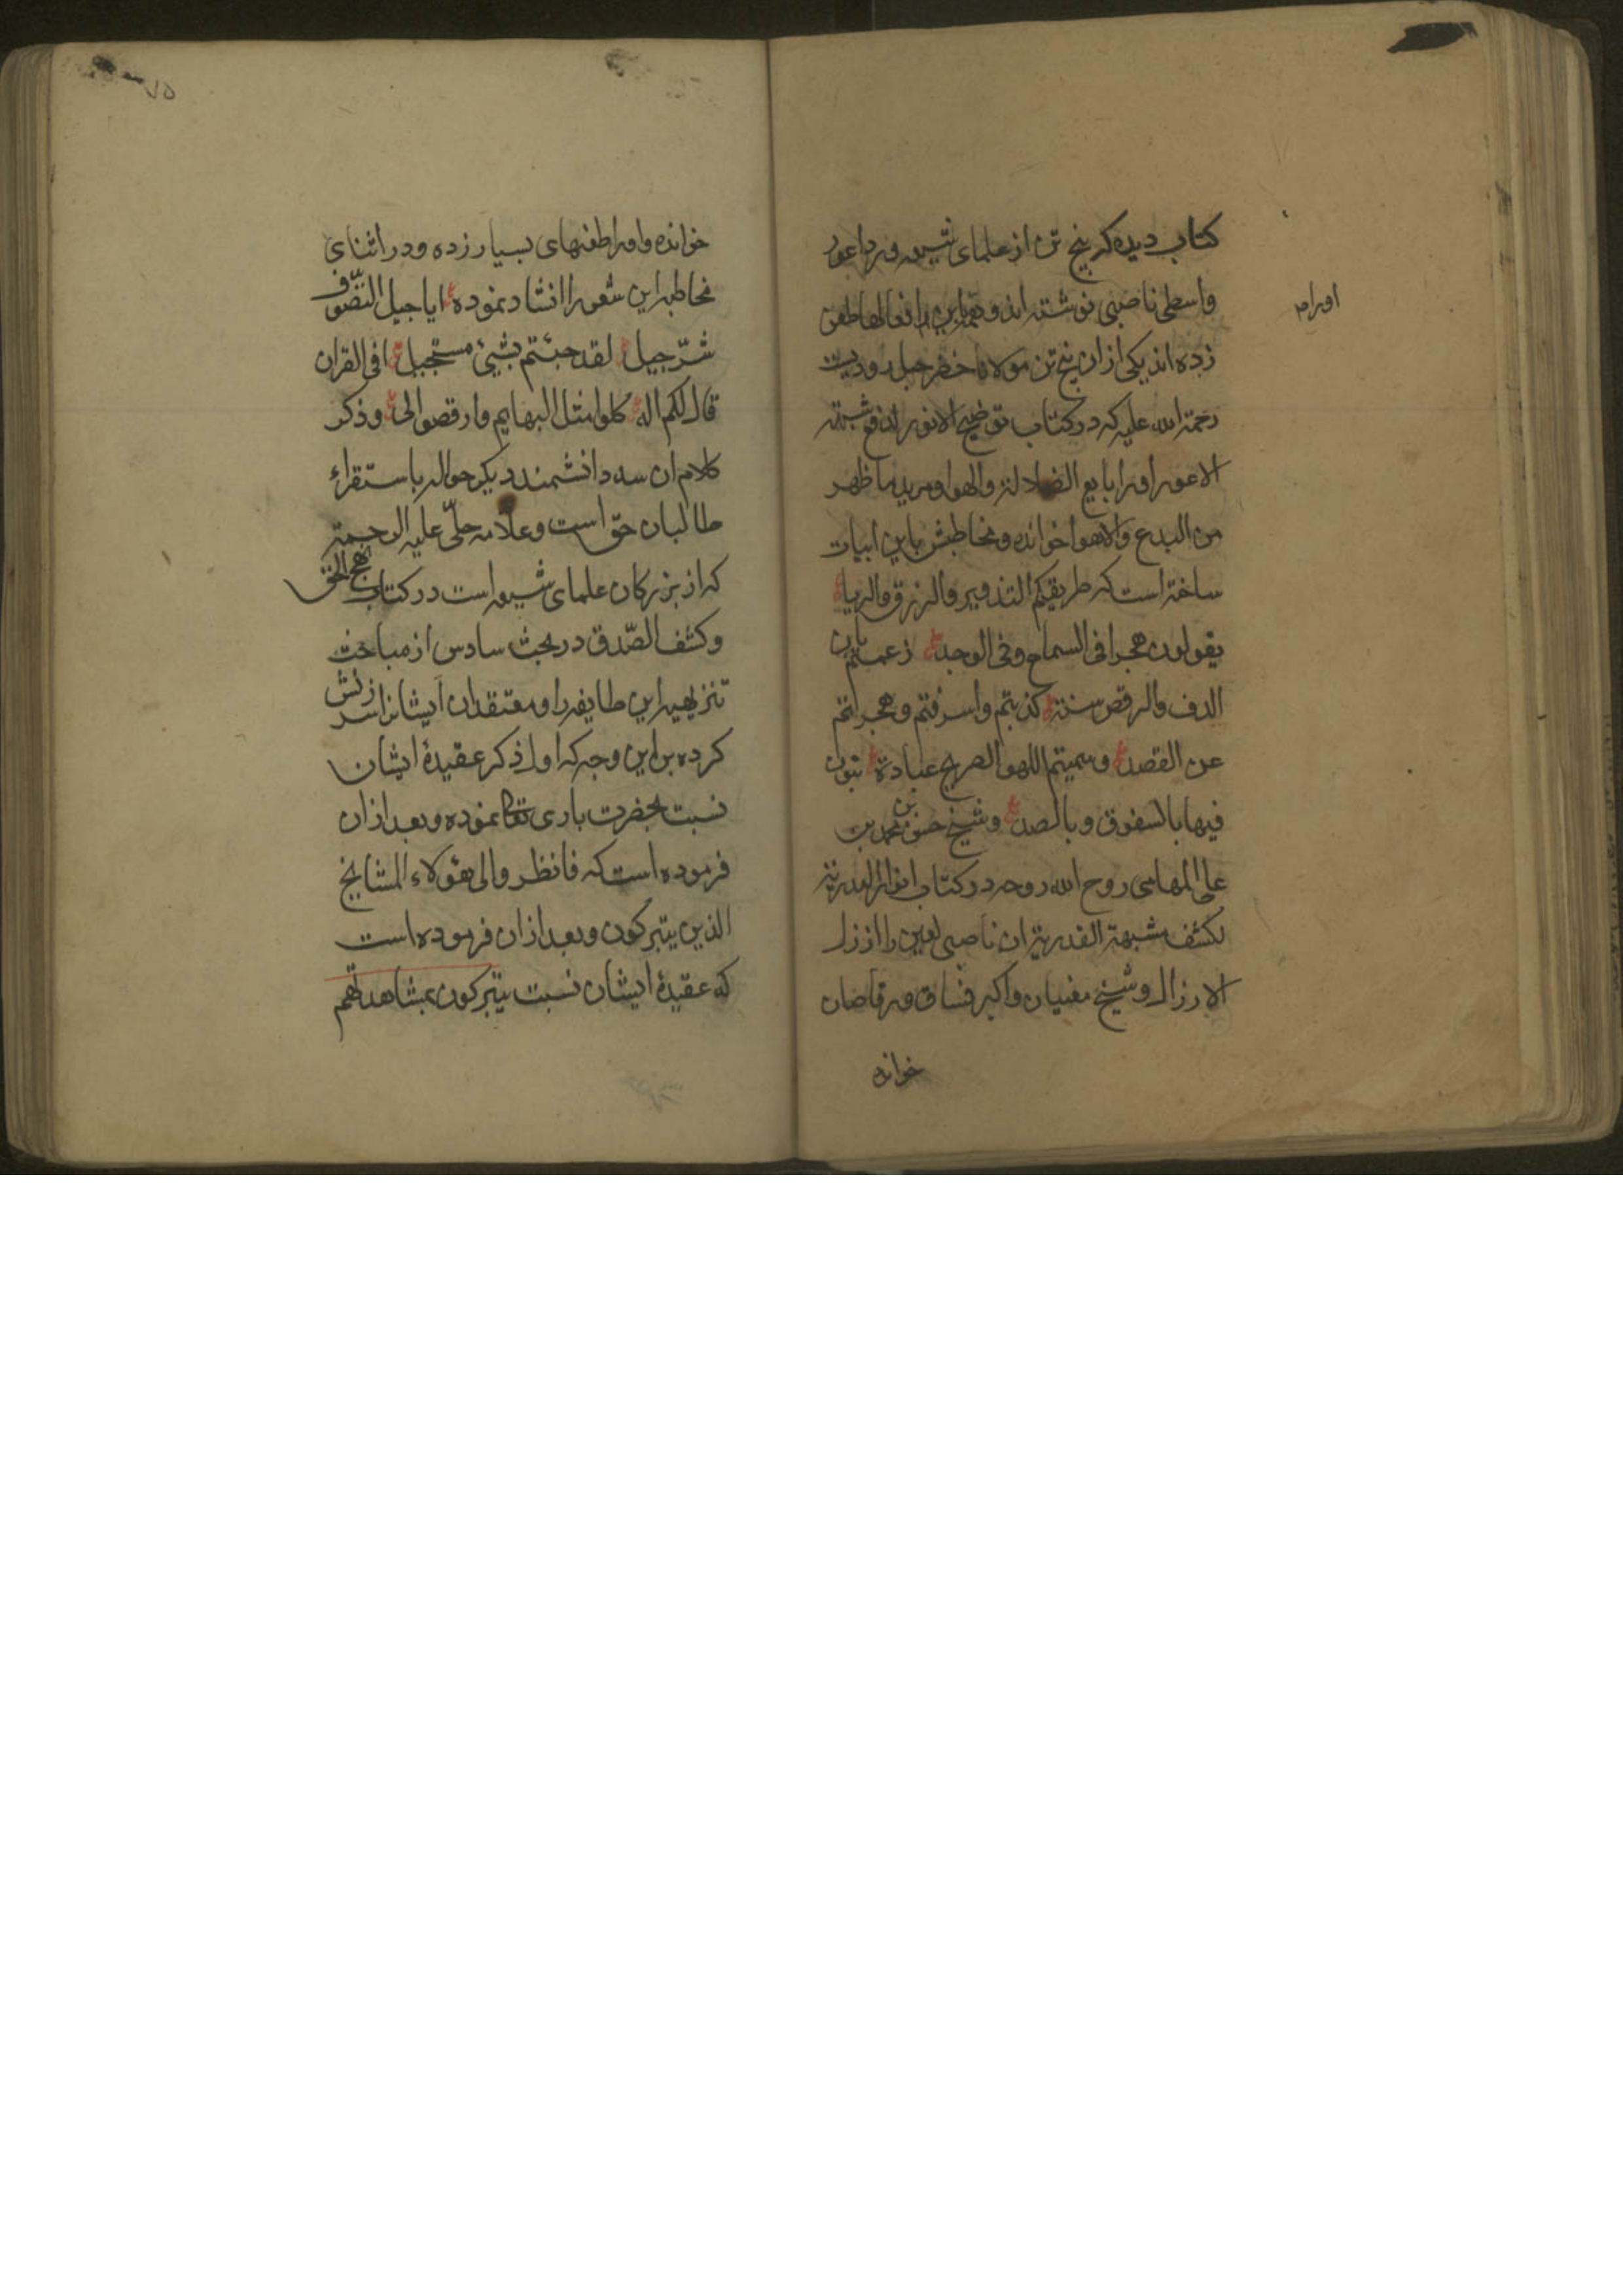 کتاب دیده که پنج تن از علمای شیعه ورد اعور
واسطی ناصبی نوشته اند و بهمین افعالها طعن
اورام
زده اند یکی ازان پنج تن مولانا خضر حبلرودیست
رحمة الله علیه که در کتاب توضیح الانور لدفع شبه
الاعور اورا بایع الضلالة والهوا ومرید ما ظهر
من البدع والاهوا خوانده ومخاطبش باین ابیات
ساخته است که طریقکم التذویر والزرق والریا
یقولون هجرا فی السماع وفی الوجد زعمتم بان
الدف والرقص سنة کذبتم واسرفتم وهجرانتم
عن القصد وسمیتم اللهو الصریح عبادة
فیها بالسفوق وبالصد وشیخ حسن بن محمد بن
علی المهلبی روح الله روحه در کتاب انوار البدریة
لکشف شبهة القدریة ان ناصبی لعین را ارذل
الارزال وشیخ مغنیان واکبر فساق ورقاصان
خوانده
خوانده واورا طعنهای بسیار زده ودر اثنای
مخاطبه این شعر را انشاد نموده ایا جیل التصوف
شرّ جیل لقد جئتم بشیئ مستحیل افی القران
قال لکم اله کلوا مثل البهایم وارقصوا لی وذکر
کلام ان سه دانشمند دیکر حواله باستقراء
طالبان حق است وعلامه حلّی علیه الرحمة
که از بزرکان علمای شیعه است در کتاب نهج الحق
وکشف الصّدق در بحث سادس از مباحث
تنزیهیه این طایفه را ومعتقدان ایشانرا سرزنش
کرده بر این وجه که اول ذکر عقیدۀ ایشان
نسبت بحضرت باری تعالی نموده وبعد ازان
فرموده است که فانظروا الی هؤلاء المشایخ
الذین یتبرکون وبعد ازان فرموده است
که عقیدۀ ایشان نسبت یتبرکون بمشاهدتهم